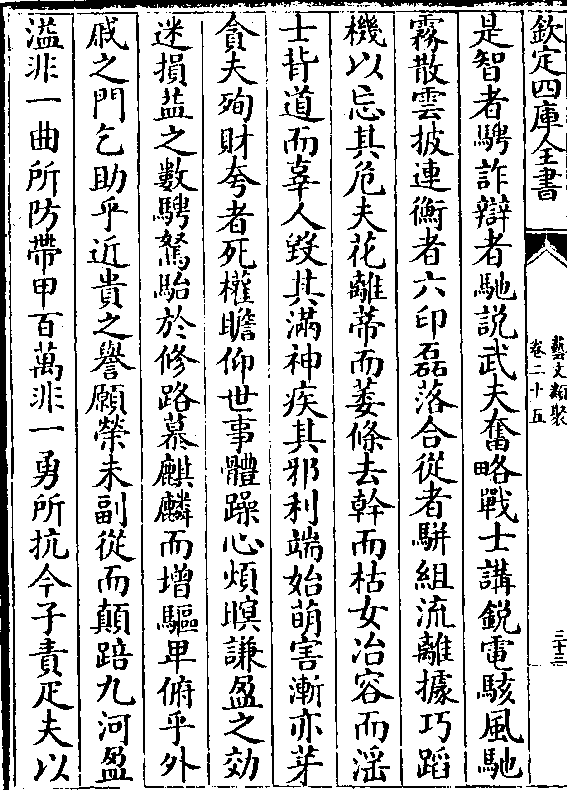 欽定四庫全書
藝文類聚
卷二十五
三十三
是智者騁詐辯者馳説武夫奮略戰士講鋭電駭風馳
霧散雲披連衡者六印磊落合從者駢組流離據巧蹈
機以忘其危夫花離蔕而萎條去幹而枯女冶容而淫
士背道而辜人毀其滿神疾其邪利端始萌害漸亦芽
貪夫殉財夸者死權瞻仰世事體躁心煩暝謙盈之効
迷損益之數騁駑駘於修路慕騏驎而增驅卑俯乎外
戚之門乞助乎近貴之譽願榮未副從而顛踣九河盈
溢非一曲所防帶甲百萬非一勇所抗今子責疋夫以